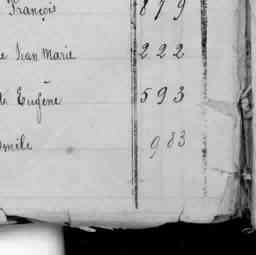 François 879
e Jean Marie 222
de Eugène 593
Emile 983